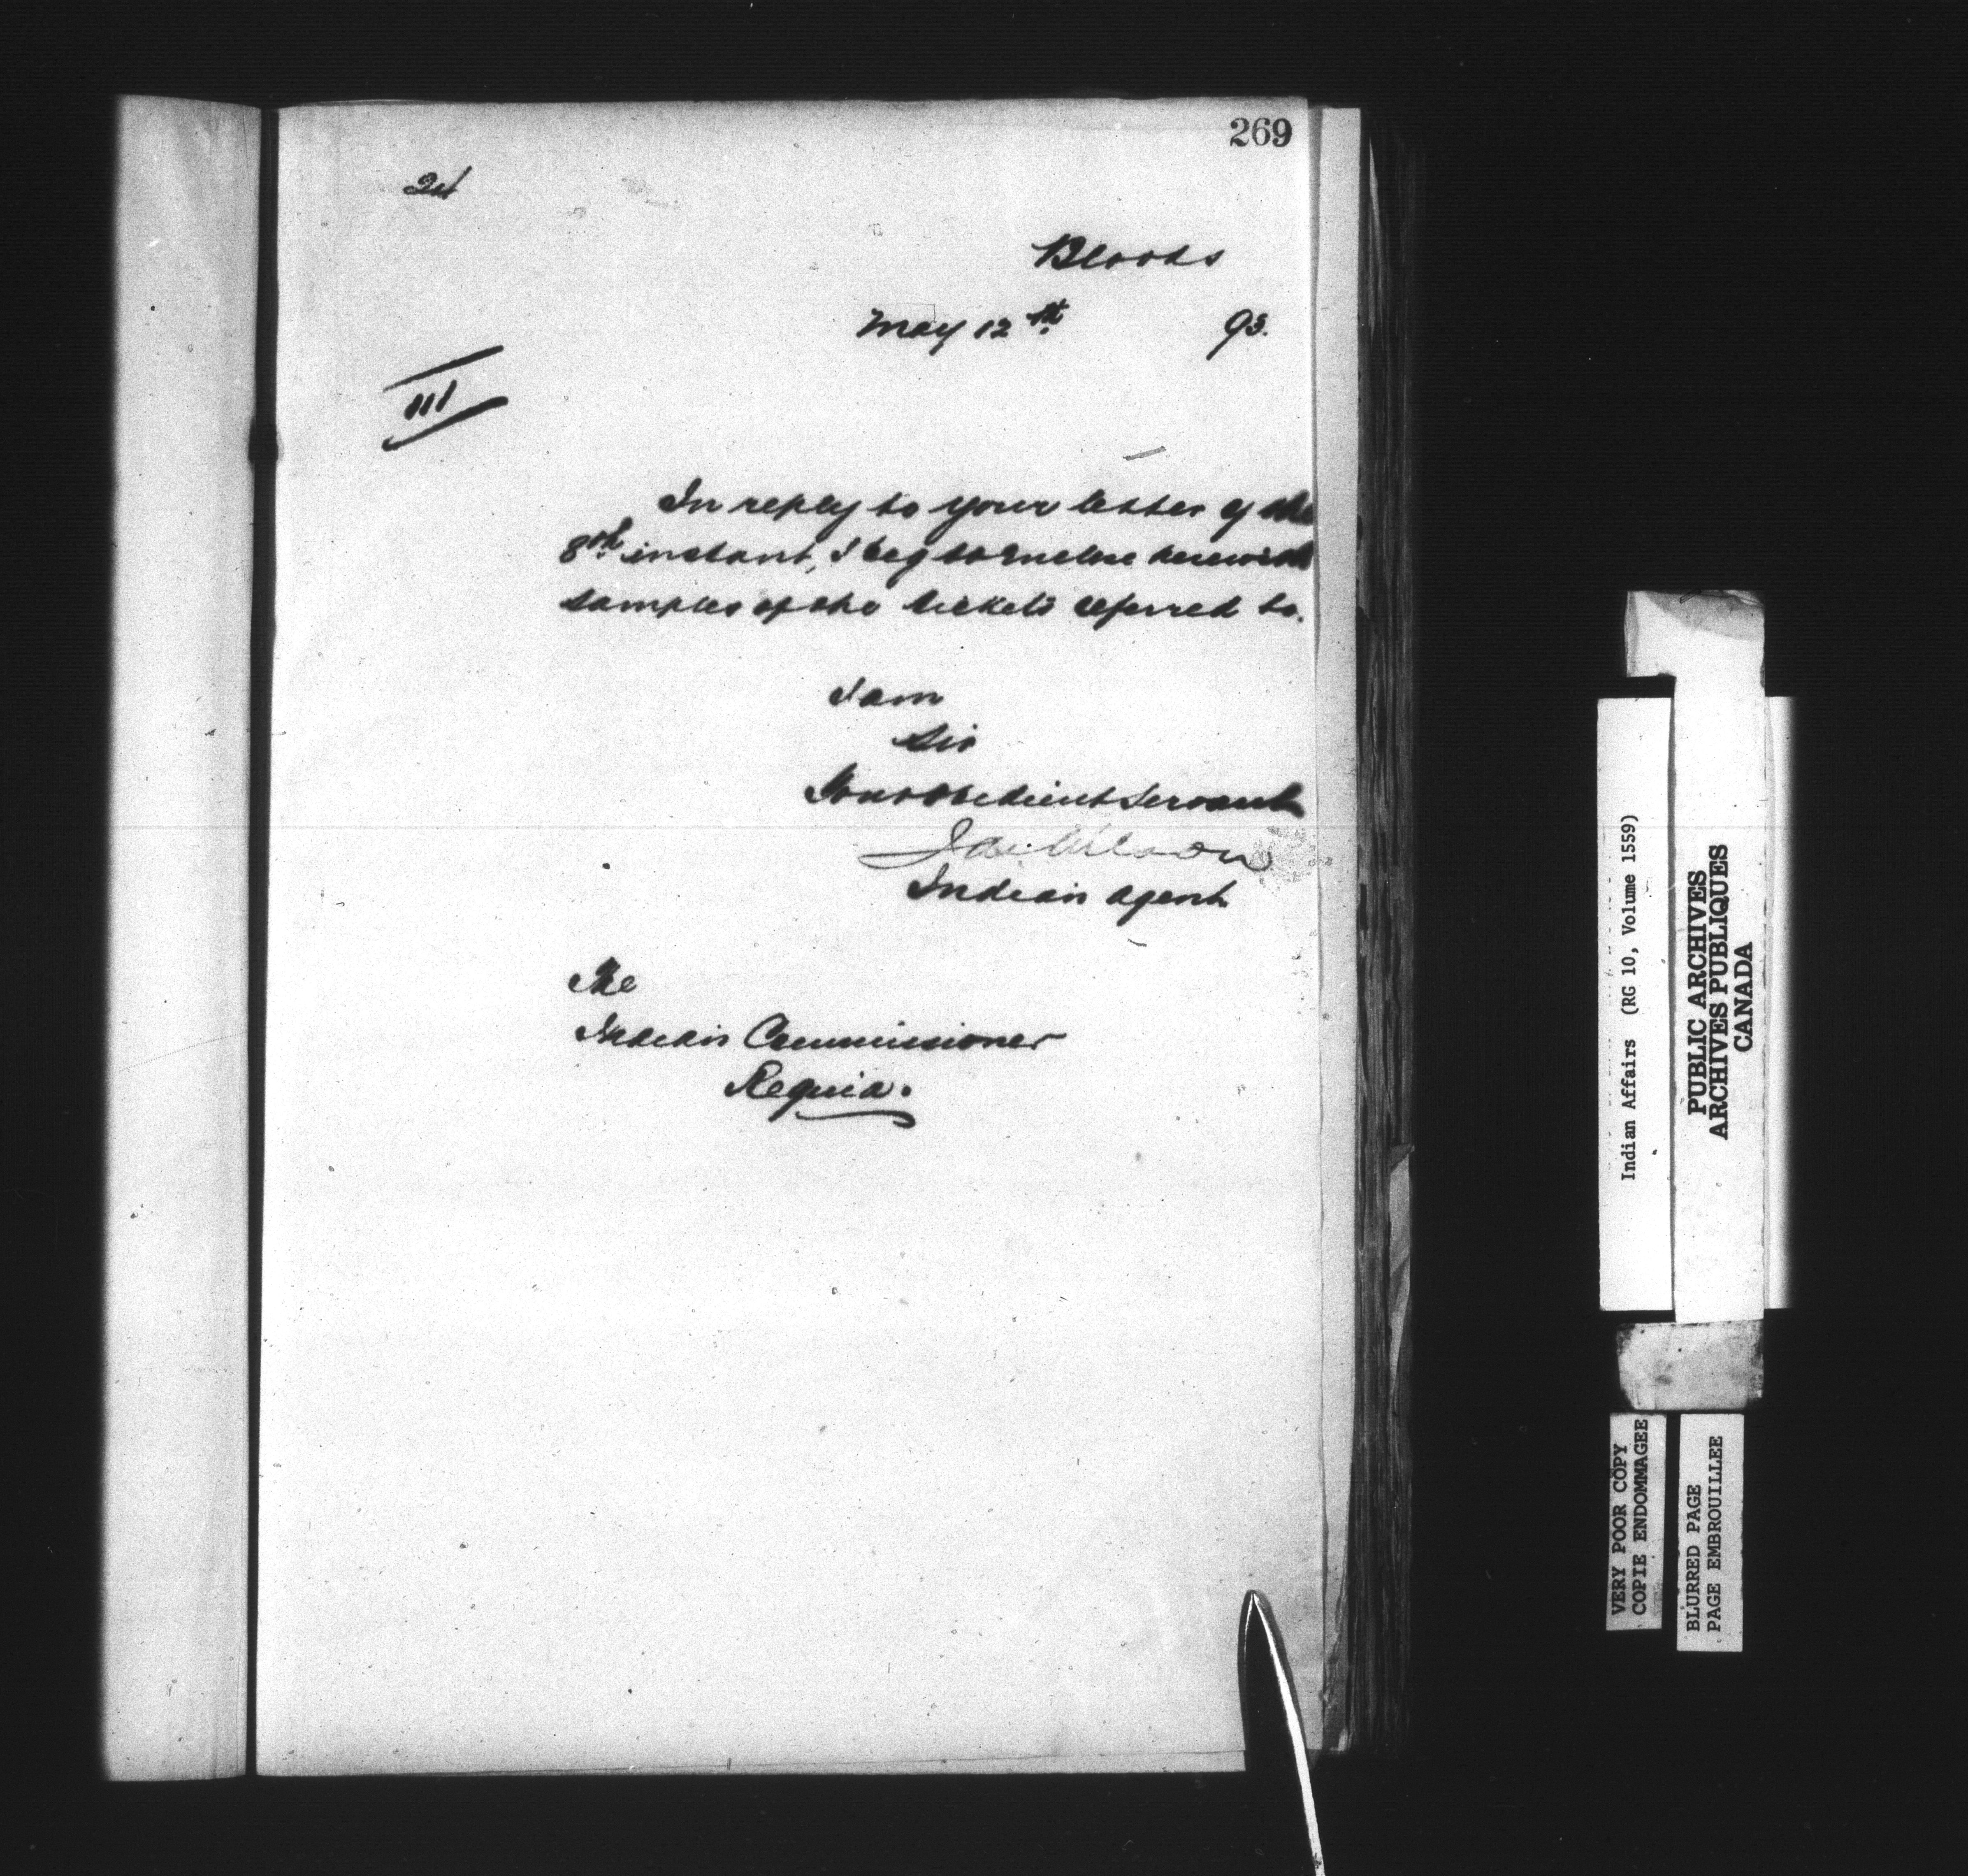 269
Bloods
May 12th 93.
111
In reply to your letter of the
8th instant, I beg to enclose herewith
samples of the tickets referred to.
I am
Sir
Your obedient servant
Jas. Wilson
Indian Agent
The
Indian Commissioner
Regina.
Indian Affairs (RG 10, Volume 1559)
PUBLIC ARCHIVES
ARCHIVES PUBLIQUES
CANADA
VERY POOR COPY
COPIE ENDOMMAGEE
BLURRED PAGE
PAGE EMBROUILLEE